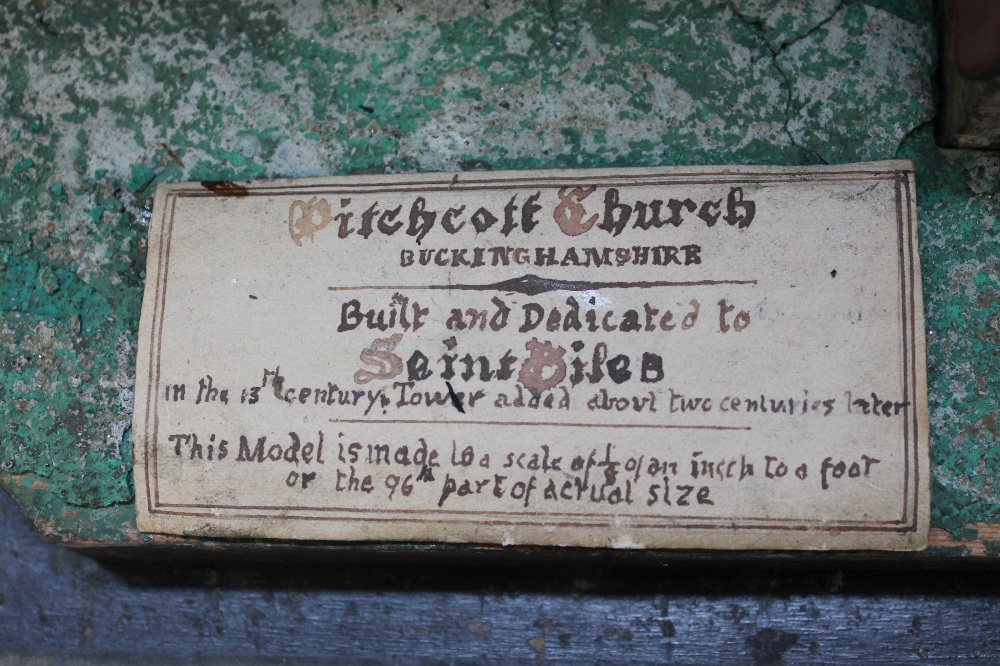 Pitchcott Church
BUCKINGHAMSHIRE
Built and Dedicated to
Saint Giles
in the 13th century, Tower added about two centuries later
This Model is made to a scale of 1/8 of an insch to a foot
or the 96th part of actual size